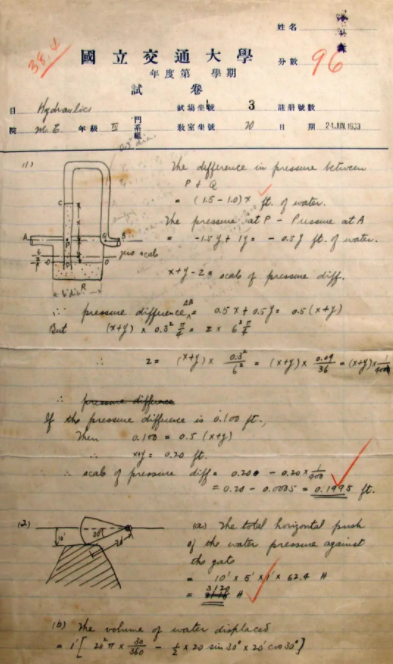 姓名
38.4
國立交通大學
分數 96
年度第 學期
試卷
目 Hydraulics 試場坐號 3 註冊號數
院 M.E. 年級 III 門系組 教室坐號 70 日期 24 JUN 1933
(1) The difference in pressure between
P & Q
= (1.5 - 1.0) x ft. of water.
The pressure at P - Pressure at A
= -1.5y + 1y = -0.5y ft. of water.
x+y-z = scale of pressure diff.
∴ pressure difference AB = 0.5x + 0.5y = 0.5(x+y)
But (x+y) × 0.3² π/4 = z × 6² π/4
∴ z = (x+y) × 0.3²/6² = (x+y) × 0.09/36 = (x+y) × 1/400
∴ pressure difference
If the pressure difference is 0.100 ft.,
Then 0.100 = 0.5 (x+y)
∴ x+y = 0.20 ft.
∴ scale of pressure diff = 0.200 - 0.20 × 1/400
= 0.20 - 0.0005 = 0.1995 ft.
(2) (a) The total horizontal push
of the water pressure against
the gate
= 10' × 5' × 1' × 62.4 #
= 3120 #
(b) The volume of water displaced
= 1' [ 20² π × 30/360 - 1/2 × 20 sin 30° × 20 cos 30° ]